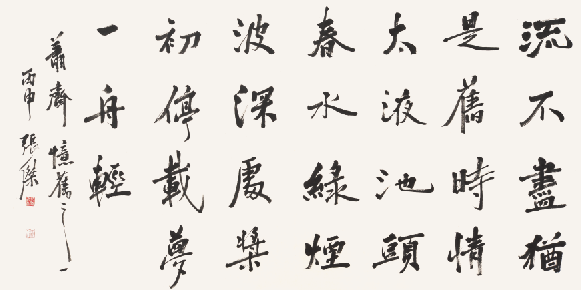 流不盡猶
是舊時情
太液池頭
春水綠煙
波深處槳
初停載夢
一舟輕
蕭齋憶舊之一
丙申張傑